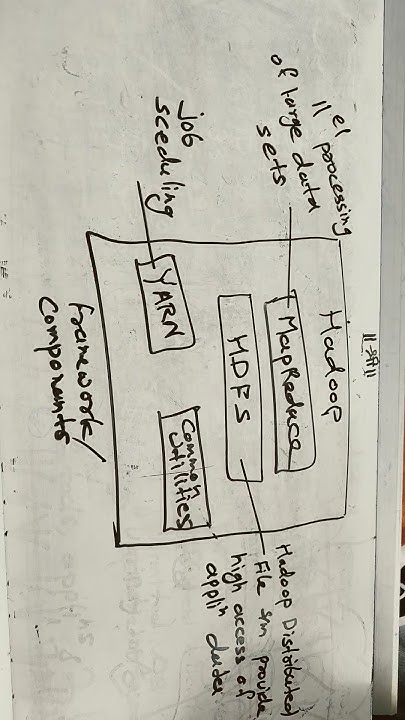 Hadoop
||el processing
of large data
sets
MapReduce
HDFS
Hadoop Distributed
File s/m provide
high access of
applin data
YARN
Common
Utilities
job
sceduling
framework/
Components